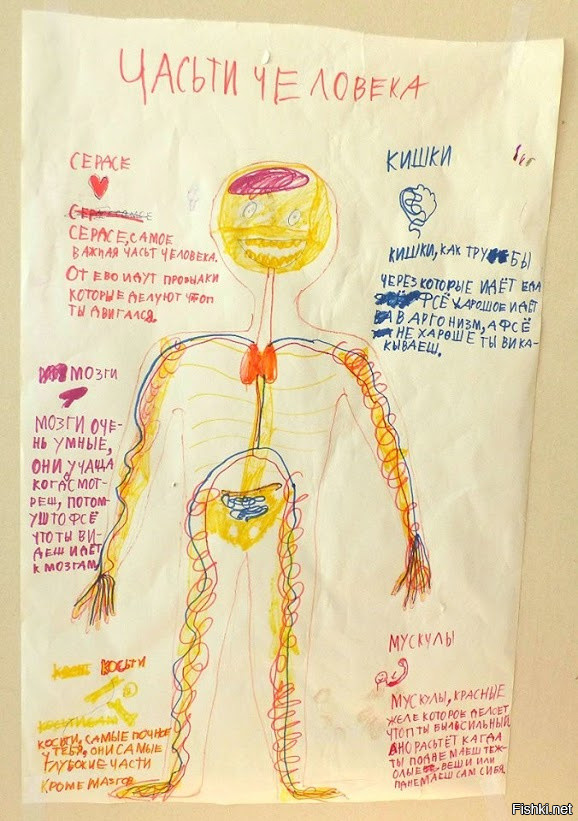 ЧАСЬТИ ЧЕЛОВЕКА
СЕРАСЕ
СЕРАСЕ, САМОЕ
ВАЖНАЯ ЧАСЬТ ЧЕЛОВЕКА.
ОТ ЕВО ИДУТ ПРОВЫДКИ
КОТОРЫЕ ДЕЛУЮТ ЧТОП
ТЫ ДВИГАЛСЯ.
КИШКИ
КИШКИ, КАК ТРУБЫ
ЧЕРЕЗ КОТОРЫЕ ИДЁТ ЕДА
ФСЁ ХАРОШОЕ ИДЁТ
В АРГОНИЗМ, А ФСЁ
НЕ ХАРОШЕ ТЫ ВИКА-
КЫВАЕШ.
МОЗГИ
МОЗГИ ОЧЕ-
НЬ УМНЫЕ,
ОНИ УЧАЦА
КОГДА СМОТ-
РЕШ, ПОТОМ-
УШТО ФСЁ
ЧТО ТЫ ВИ-
ДЕШ ИДЁТ
К МОЗГАМ
КОСЬТИ
КОСЬТИ, САМЫЕ ПОЧНОЕ
У ТЕБЯ, ОНИ САМЫЕ
ГЛУБОКИЕ ЧАСТИ
КРОМЕ МАЗГОВ
МУСКУЛЫ
МУСКУЛЫ, КРАСНЫЕ
ЖЕЛЕ КОТОРОЕ ДЕЛОЕТ
ЧТОП ТЫ БЫЛ СИЛЬНЫЙ
ОНО РАСЬТЁТ КАГДА
ТЫ ПОДНЕМАЕШ ТЕЖ-
ОЛЫЕ ВЕШИ ИЛИ
ПАНЕМАЕШ САМ СИБЯ.
Fishki.net